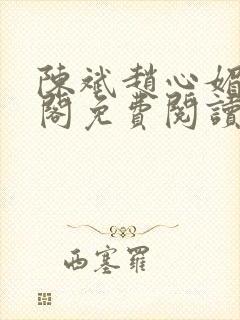 陳斌趙心媚
閣免費閱讀
西塞羅